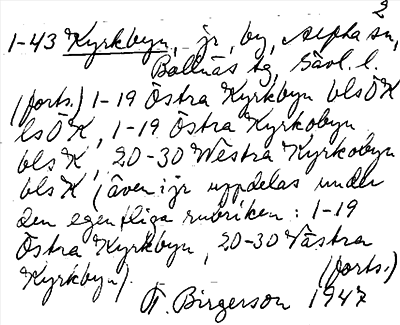 2
1-43 Kyrkbyn, jr, by, Alfta sn,
Bollnäs tg, Gävl. l.
(forts.) 1-19 Östra Kyrkbyn blsÖK
lsÖK, 1-19 Östra Kyrkobyn
blsK, 20-30 Westra Kyrkobyn
blsK (även i jr uppdelas under
den egentliga rubriken: 1-19
Östra Kyrkbyn, 20-30 Västra
Kyrkbyn). (forts.)
Birgerson 1947